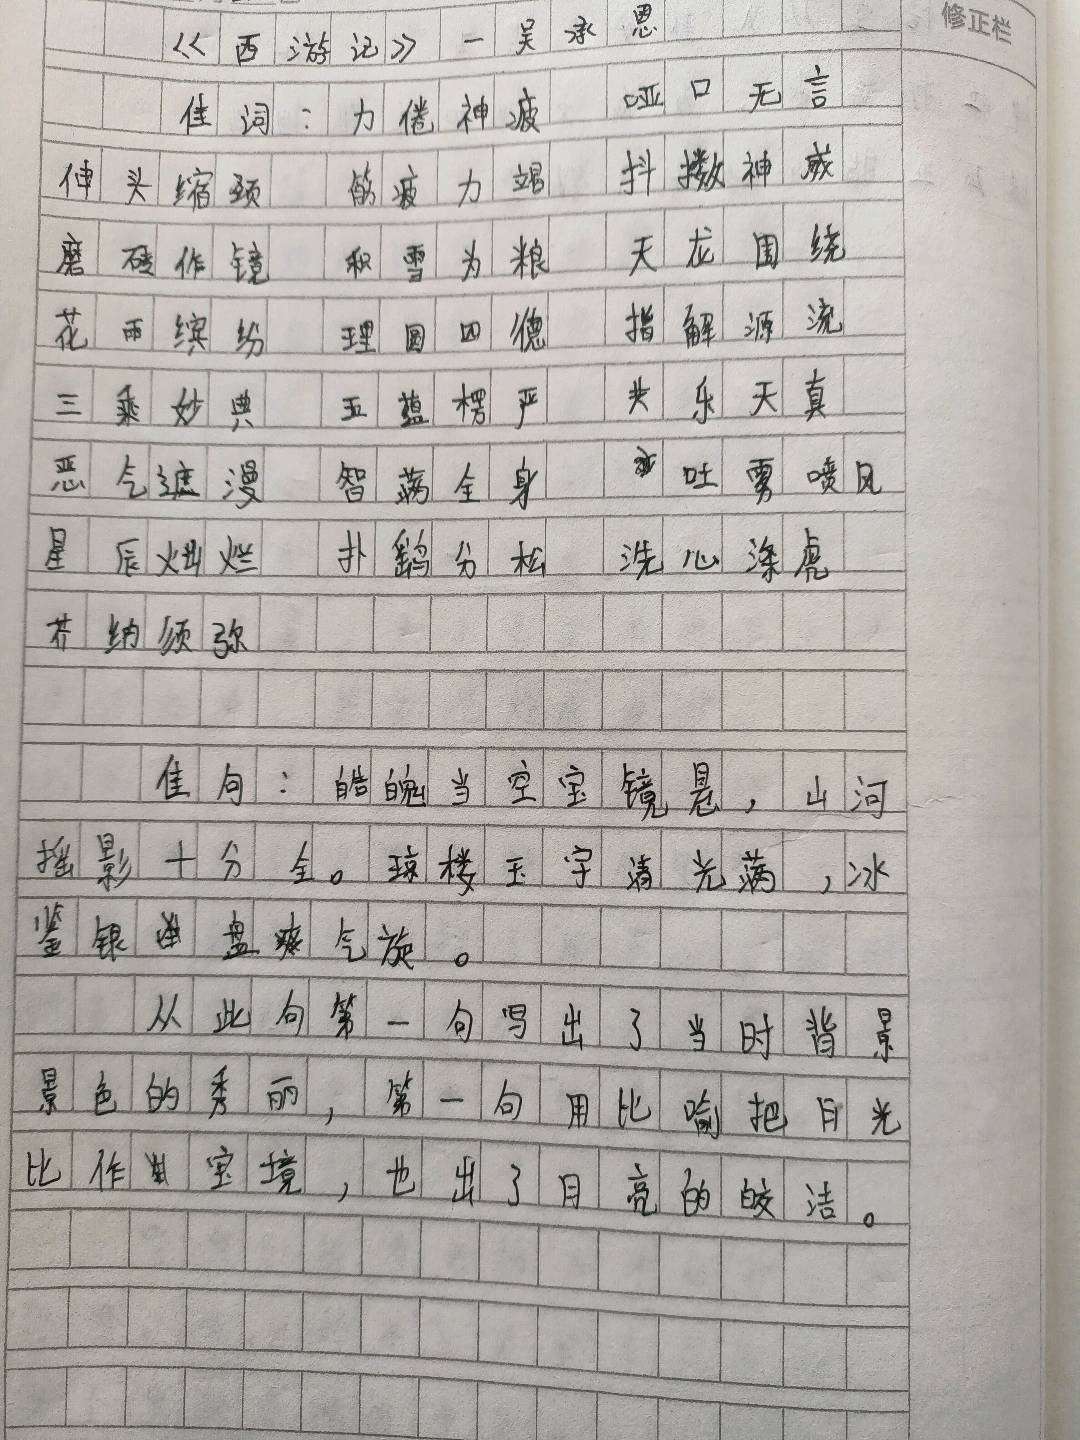 修正栏
《西游记》—吴承恩
佳词：力倦神疲 哑口无言
伸头缩颈 筋疲力竭 抖擞神威
磨砖作镜 积雪为粮 天龙围绕
花雨缤纷 理圆四德 指解源流
三乘妙典 五蕴楞严 共乐天真
恶气遮漫 智满全身 吐雾喷风
星辰灿烂 扑鹞分松 洗心涤虑
芥纳须弥
佳句：皓魄当空宝镜悬，山河
摇影十分全。琼楼玉宇清光满，冰
鉴银盘爽气旋。
从此句第一句写出了当时背景
景色的秀丽，第一句用比喻把月光
比作宝境，也出了月亮的皎洁。